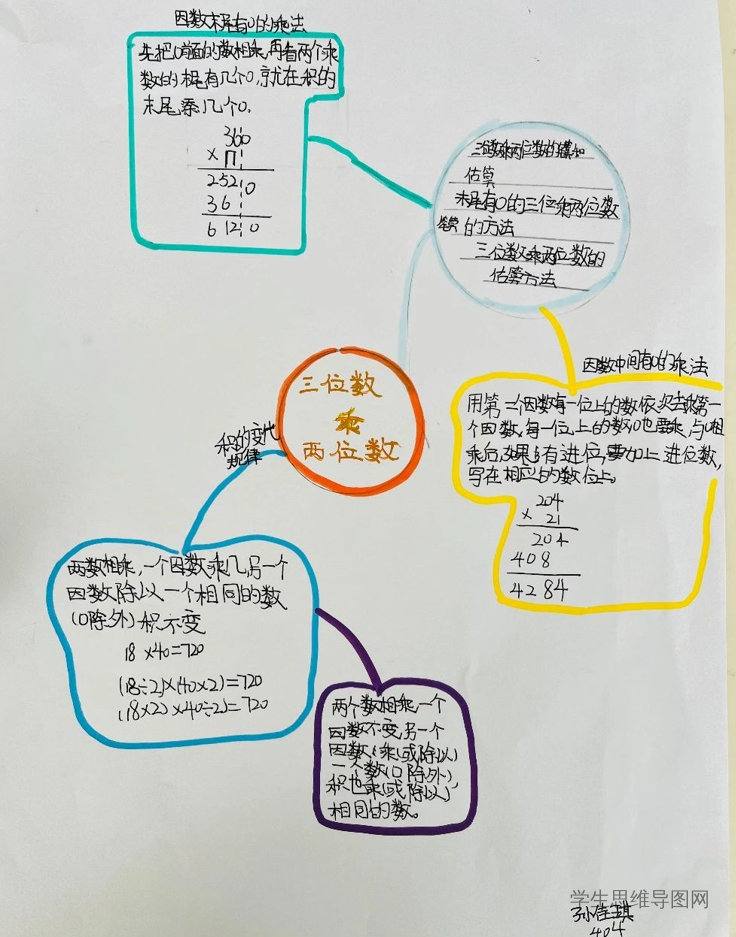 因数末尾有0的乘法
先把0前面的数相乘,再看两个乘
数的末尾有几个0,就在积的
末尾乘几个0。
360
×17
2520
36
6120
三位数乘两位数的笔算和
估算
末尾有0的三位乘两位数
的方法
三位数乘两位数的
估算方法
三位数
乘
两位数
因数中间有0的乘法
用第二个因数每一位上的数依次去乘第一
个因数,每一位上的数,0也要乘,与0相
乘后,如果有进位,要加上进位数,
写在相应的数位上。
204
×21
204
408
4284
积的变化
规律
两数相乘,一个因数乘几另一个
因数除以一个相同的数
(0除外)积不变
18×40=720
(18÷2)×(40×2)=720
(18×2)×40÷2)=720
两个数相乘,一个
因数不变,另一个
因数乘(或除以)
一个数(0除外)
积也乘(或除以)
相同的数。
学生思维导图网
404